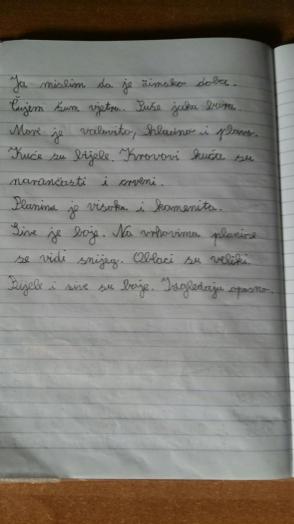 Ja mislim da je zimsko doba.
Čujem šum vjetra. Puše jaka bura.
More je valovito, hladno i plavo.
Kuće su bijele. Krovovi kuća su
narančasti i crveni.
Planina je visoka i kamenita.
Sive je boje. Na vrhovima planine
se vidi snijeg. Oblaci su veliki.
Bijele i sive su boje. Izgledaju opasno.